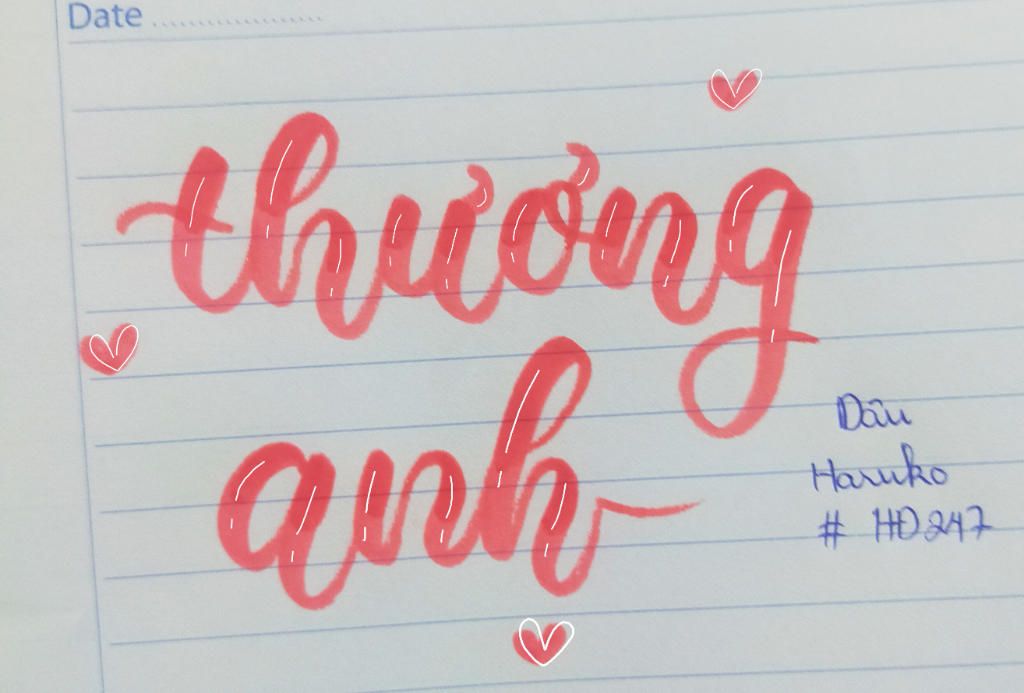 Date
thương
anh
Dâu
Haruko
# HD247